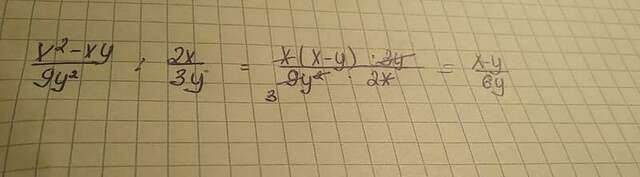 x²-xy/9y² : 2x/3y = x·(x-y)·3y/9y²·2x = x-y/6y
3